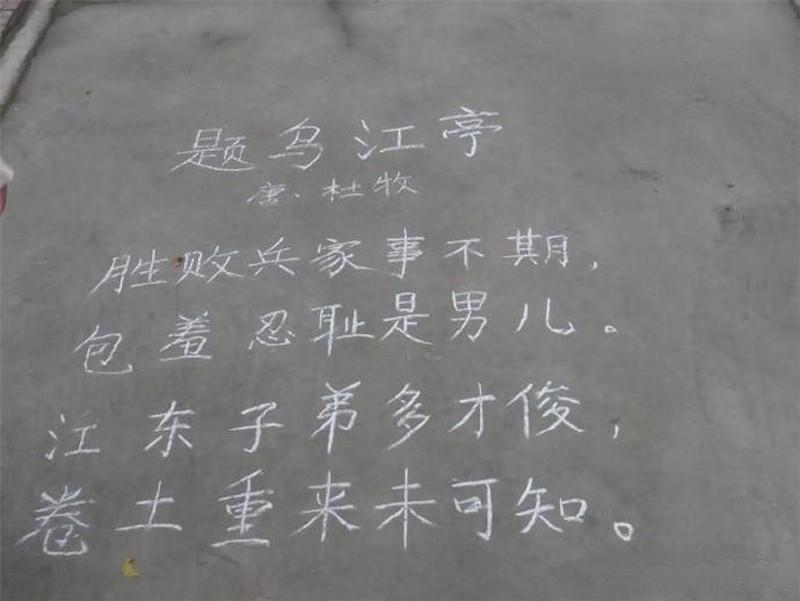 题乌江亭
唐·杜牧
胜败兵家事不期，
包羞忍耻是男儿。
江东子弟多才俊，
卷土重来未可知。